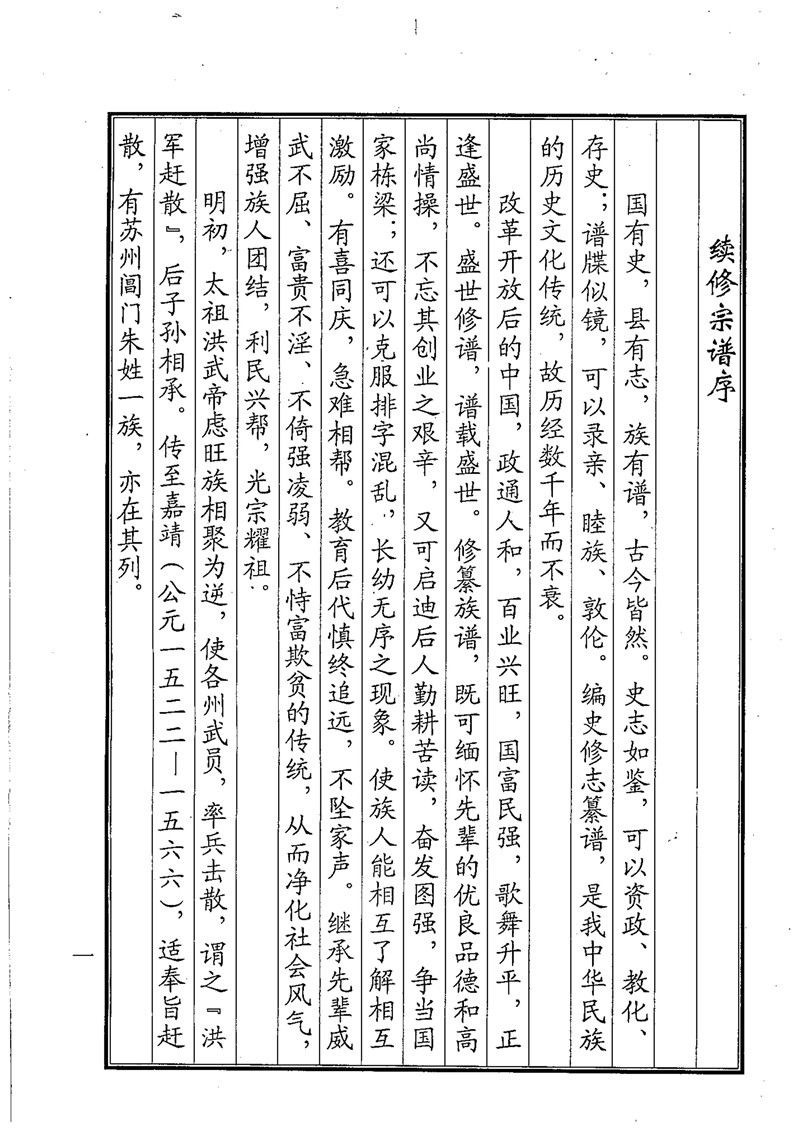 续修宗谱序
国有史，县有志，族有谱，古今皆然。史志如鉴，可以资政、教化、
存史；谱牒似镜，可以录亲、睦族、敦伦。编史修志纂谱，是我中华民族
的历史文化传统，故历经数千年而不衰。
改革开放后的中国，政通人和，百业兴旺，国富民强，歌舞升平，正
逢盛世。盛世修谱，谱载盛世。修纂族谱，既可缅怀先辈的优良品德和高
尚情操，不忘其创业之艰辛，又可启迪后人勤耕苦读，奋发图强，争当国
家栋梁；还可以克服排字混乱，长幼无序之现象。使族人能相互了解相互
激励。有喜同庆，急难相帮。教育后代慎终追远，不坠家声。继承先辈威
武不屈、富贵不淫、不倚强凌弱、不恃富欺贫的传统，从而净化社会风气，
增强族人团结，利民兴帮，光宗耀祖。
明初，太祖洪武帝虑旺族相聚为逆，使各州武员，率兵击散，谓之『洪
军赶散』，后子孙相承。传至嘉靖（公元一五二二—一五六六），适奉旨赶
散，有苏州阊门朱姓一族，亦在其列。
一